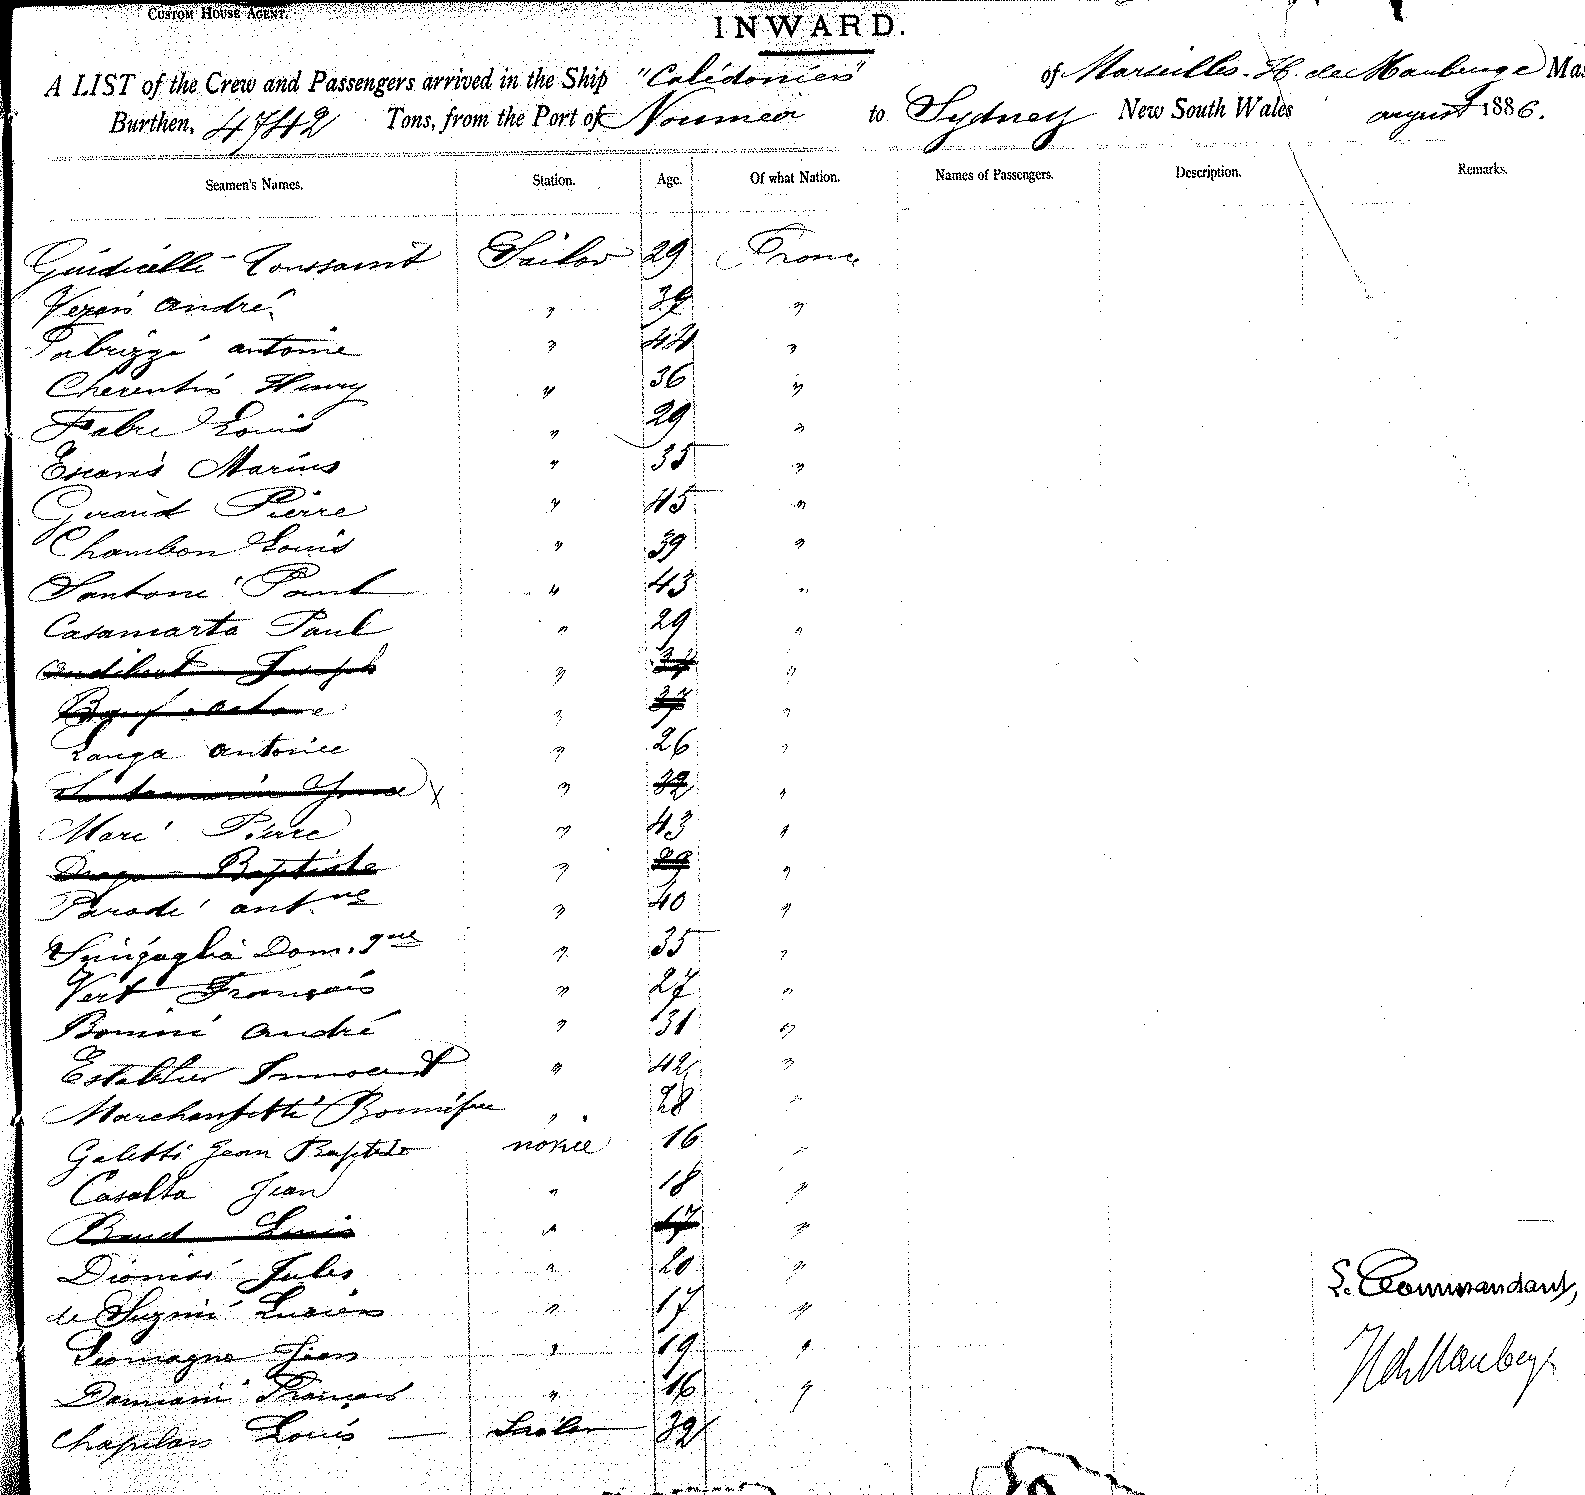 CUSTOM HOUSE AGENT.
INWARD.
A LIST of the Crew and Passengers arrived in the Ship "Calédonien" of Marseilles. H. de Maubeuge Mas
Burthen, 4742 Tons, from the Port of Noumea to Sydney New South Wales august 1886.
Seamen's Names. Station. Age. Of what Nation. Names of Passengers. Description. Remarks.
Guidicelli Toussaint Sailor 29 France
André " "
antoine " 44 "
Henry " 36 "
Fabre Louis " 29 "
Marius " 35 "
Giraud Pierre " 45 "
Chambon Louis " 39 "
Santoni Paul " 43 "
Casamarta Paul " 29 "
Audibert Joseph " "
" "
Langa antoine " 26 "
" 32 "
Mari Pierre " 43 "
Baptiste " 29 "
Parodi ant.ne " 40 "
Sinigaglia Dom.que " 35 "
Vert François " 27 "
Bonini André " 31 "
Establier Innocent " 42 "
" 28 "
Galetti Jean Baptiste novice 16 "
Casalta Jean " 18 "
Louis " 17 "
Dionisi Jules " 20 "
de Suzini Lucien " 17 "
Jean " 19 "
Damiani François " 16 "
Louis Sailor 32
L. Commandant,
H de Maubeuge